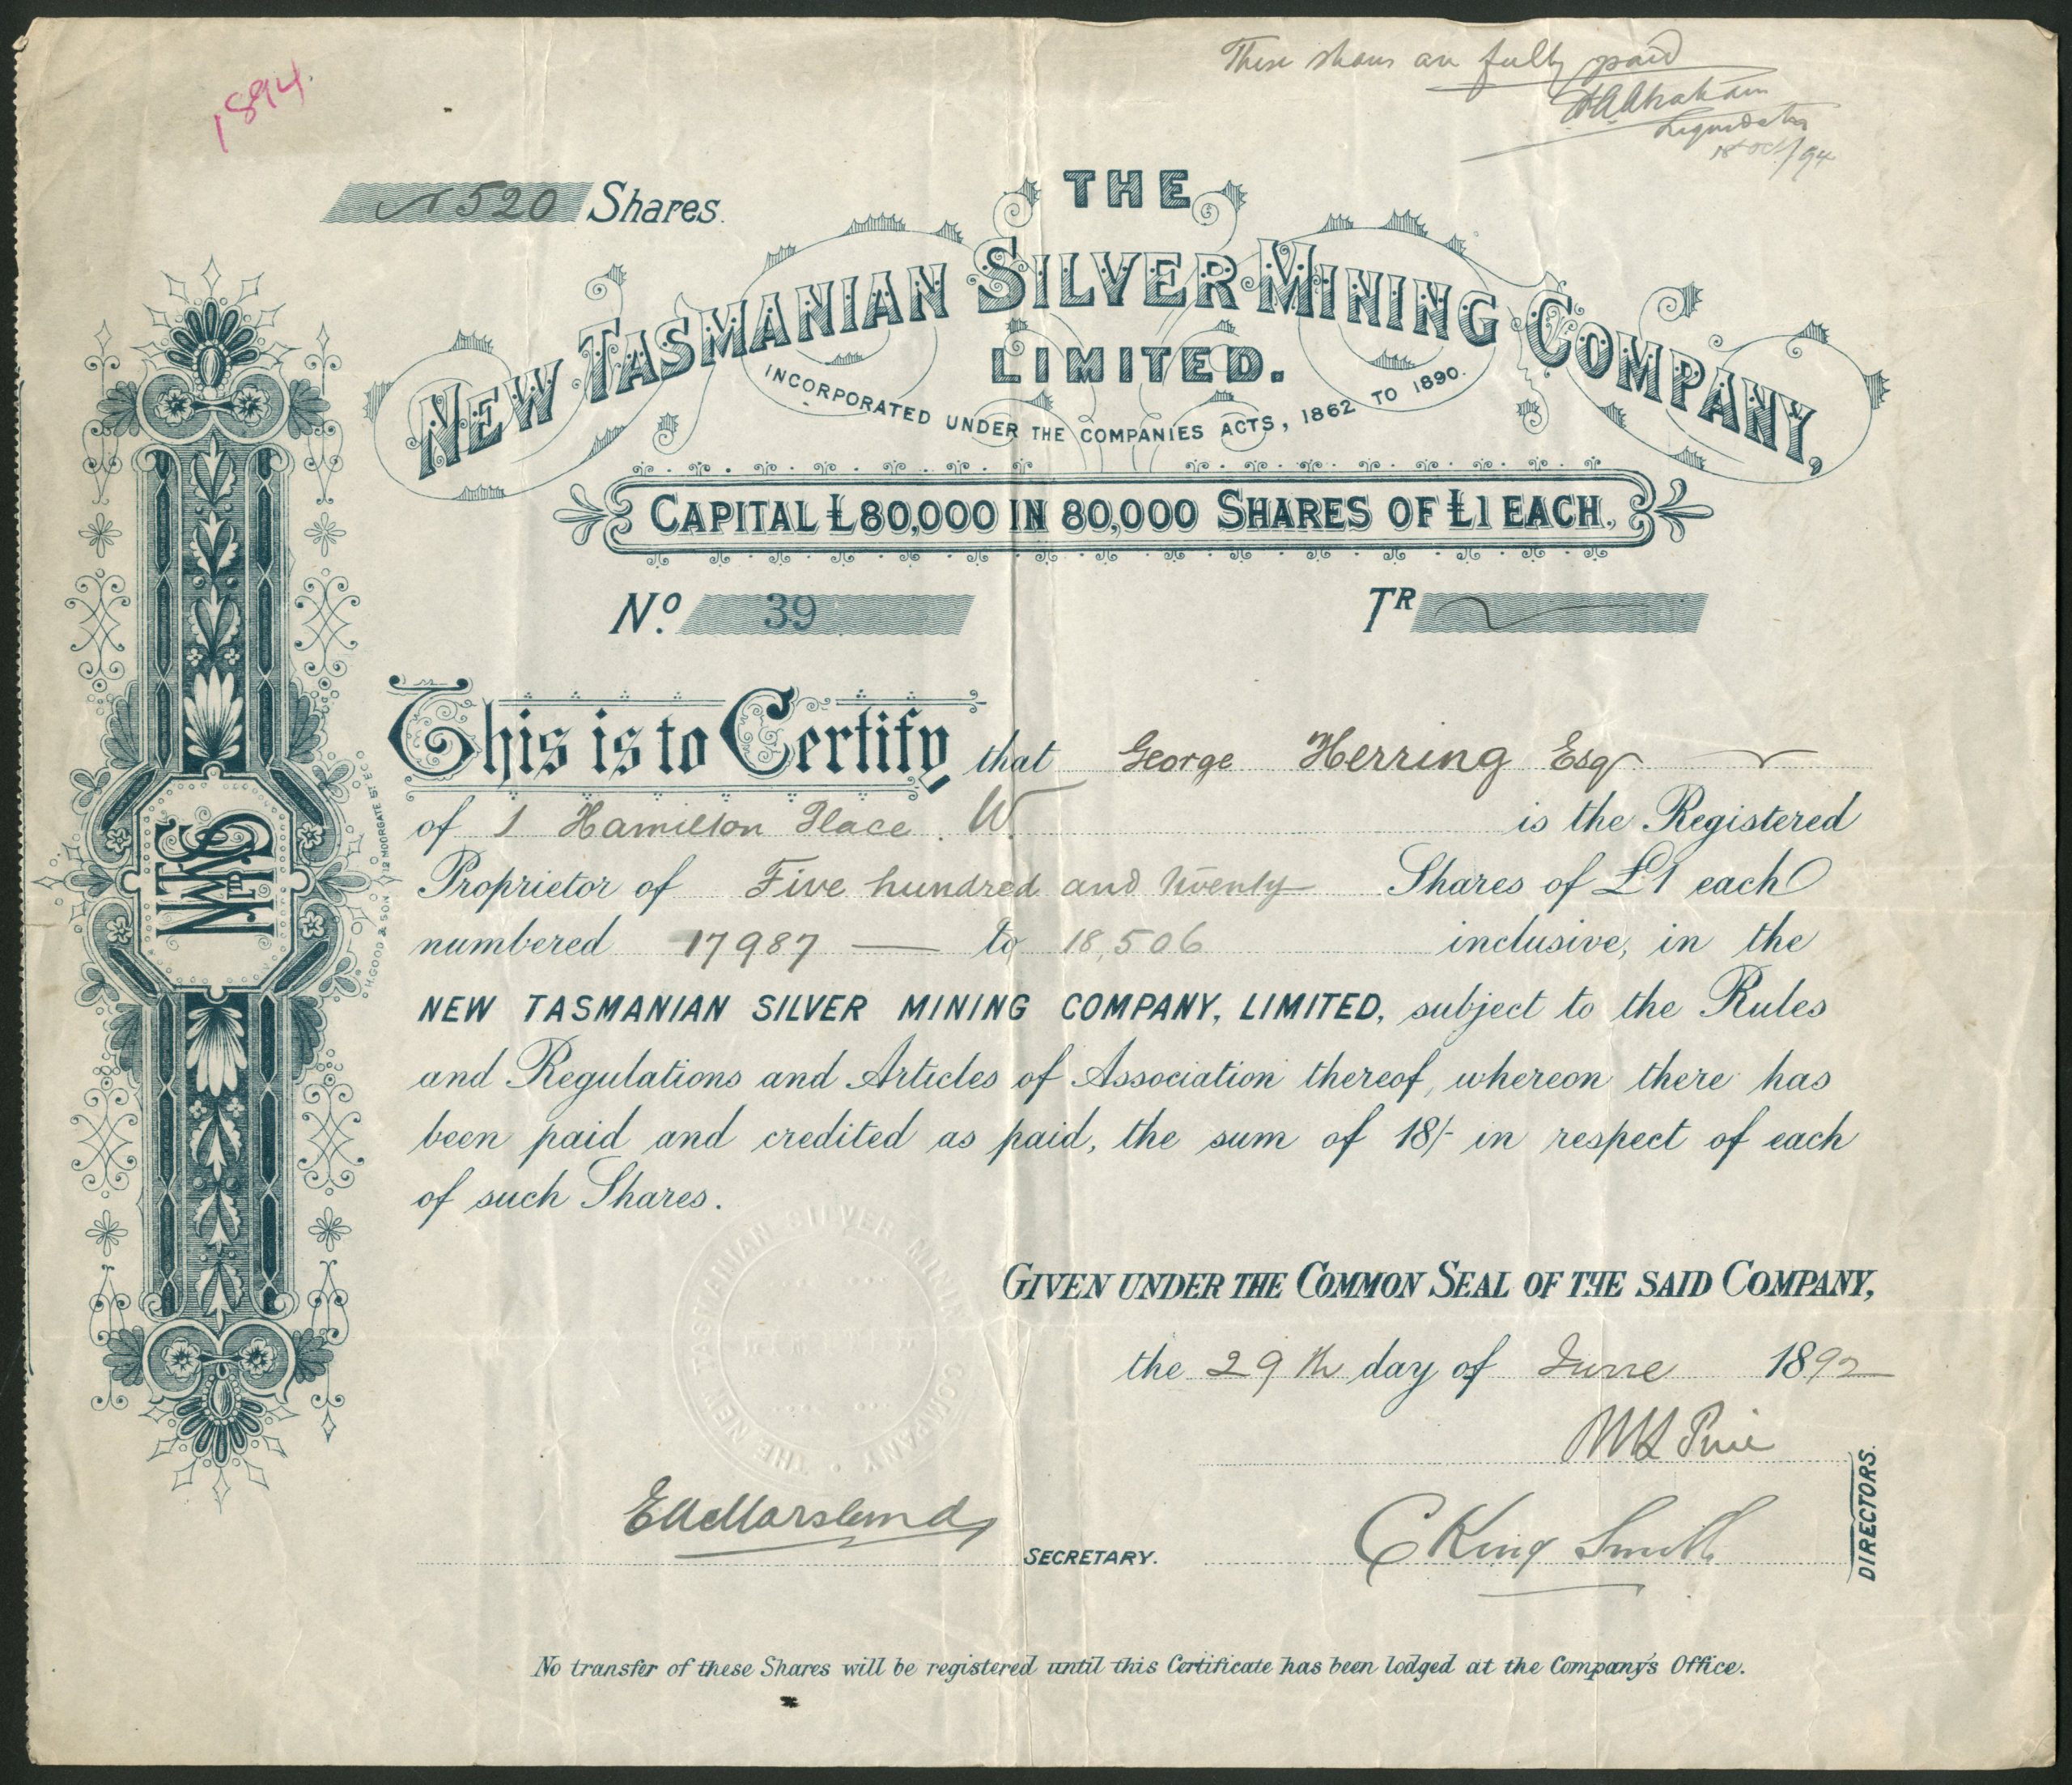 1894.
These shares are fully paid
Liquidator
18 Oct/94
520 Shares.
THE
NEW TASMANIAN SILVER MINING COMPANY,
LIMITED.
INCORPORATED UNDER THE COMPANIES ACTS, 1862 TO 1890.
CAPITAL £80,000 IN 80,000 SHARES OF £1 EACH.
No. 39 TR
This is to Certify that George Herring Esqr
of 1 Hamilton Place. W. is the Registered
Proprietor of Five hundred and twenty Shares of £1 each
numbered 17987 — to 18,506 inclusive, in the
NEW TASMANIAN SILVER MINING COMPANY, LIMITED, subject to the Rules
and Regulations and Articles of Association thereof, whereon there has
been paid and credited as paid, the sum of 18/- in respect of each
of such Shares.
GIVEN UNDER THE COMMON SEAL OF THE SAID COMPANY,
the 29th day of June 1892
C King Smith
DIRECTORS.
SECRETARY.
No transfer of these Shares will be registered until this Certificate has been lodged at the Company's Office.
NTMS
LTD
H. GOOD & SON, 12 MOORGATE ST E.C.
THE NEW TASMANIAN SILVER MINING COMPANY